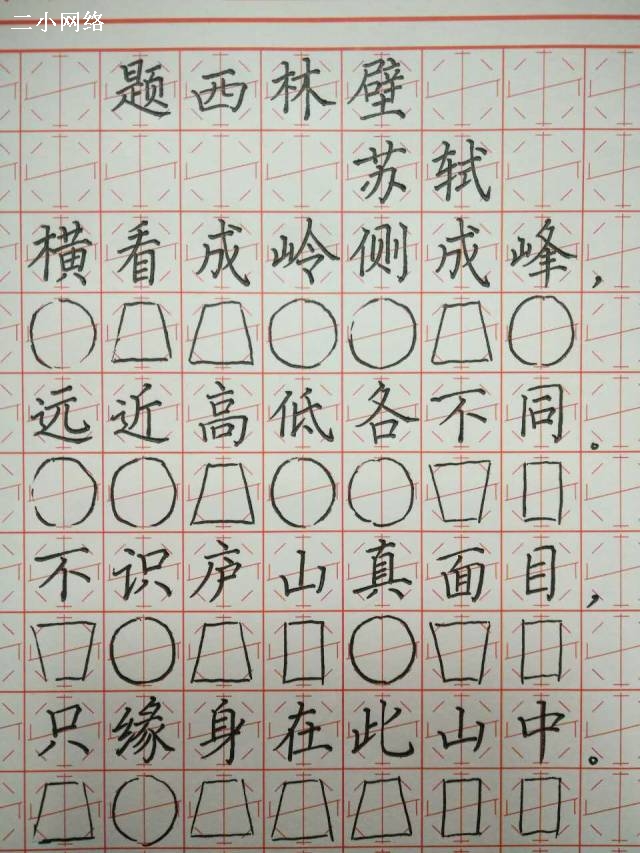 二小网络
题西林壁
苏轼
横看成岭侧成峰，
远近高低各不同。
不识庐山真面目，
只缘身在此山中。